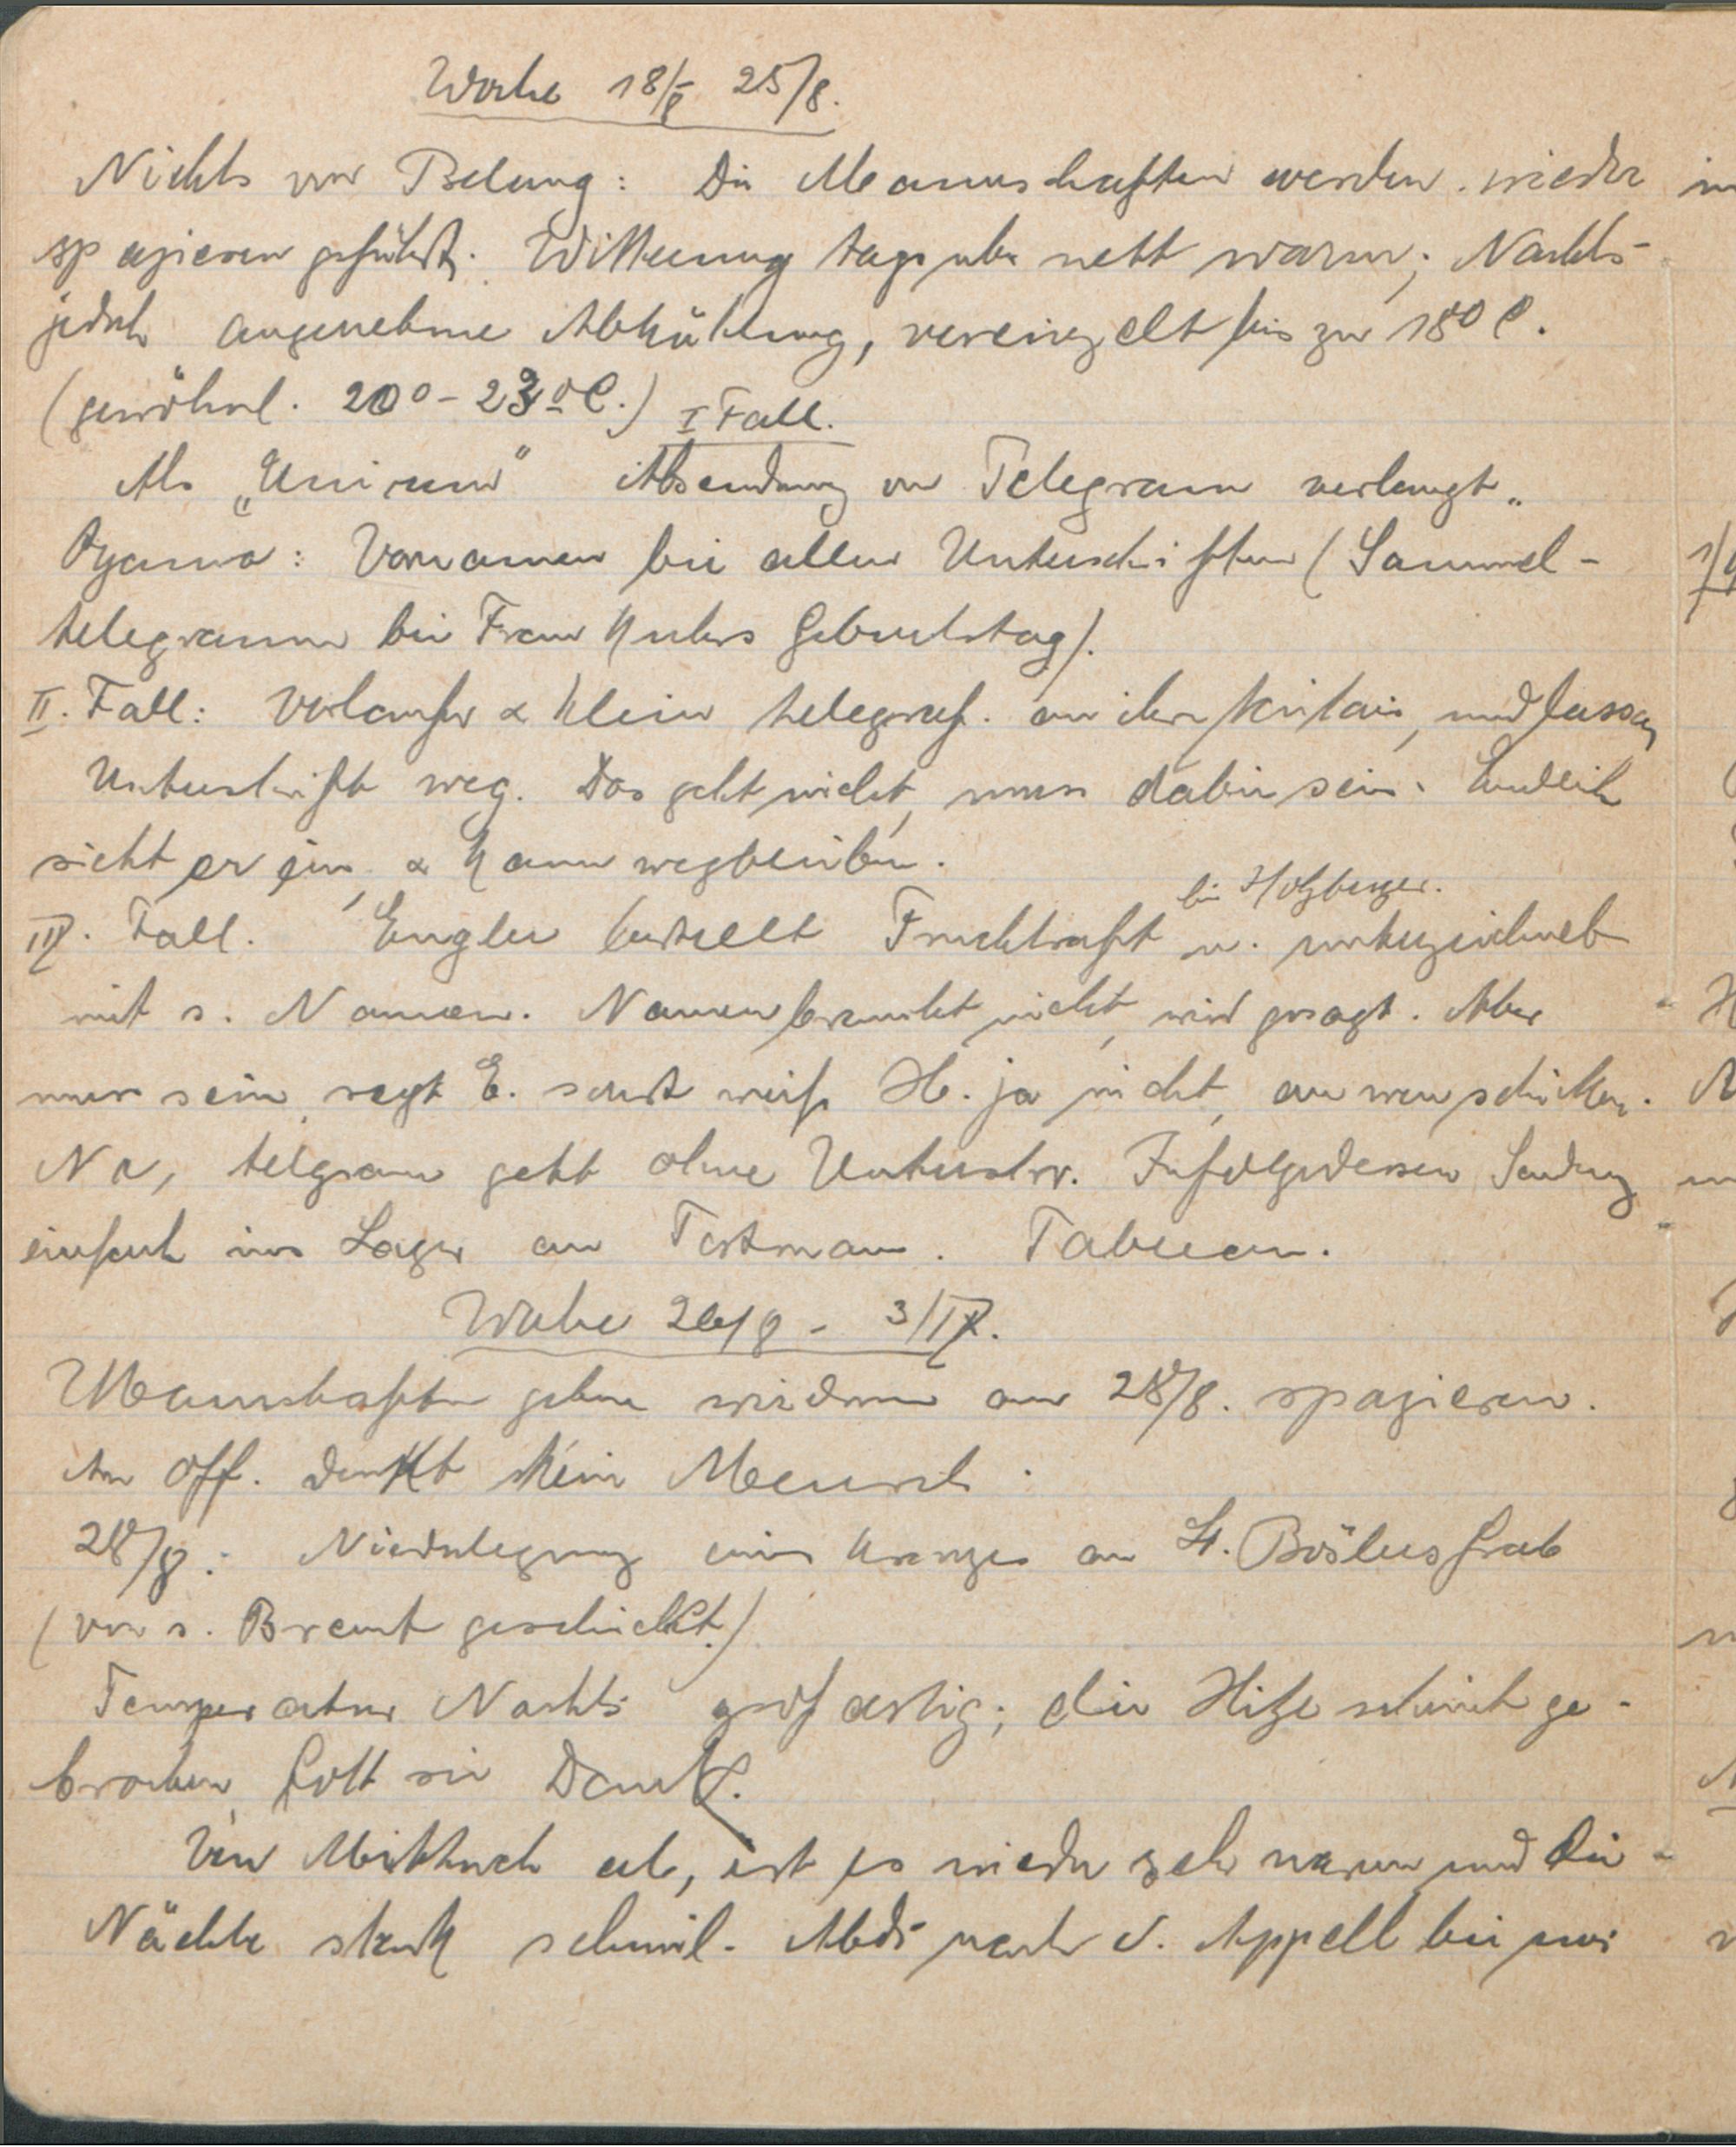 Woche 18/8 - 25/8.
Nichts von Belang: Die Mannschaften werden wieder
spazieren geführt. Witterung tagsüber nett warm; Nachts
jedoch angenehme Abkühlung, vereinzelt bis zu 18° C.
(gewöhnl. 20° - 23° C.) I Fall.
Als „Unicum" Absendung von Telegram verlangt
Oyama: Vornamen bei allen Unterschriften (Sammel-
telegramm bei Frau Geburtstag).
II. Fall: & Klein telegraf. an ihre und lassen
Unterschrift weg. Das geht nicht, muss dabei sein. Endlich
sieht er ein, & kann wegbleiben.
III. Fall. Engler bestellt Fruchtsaft bei Holzberger. u. unterzeichnet
mit s. Namen. Namen braucht nicht, wird gesagt. Aber
muss sein, sagt E. sonst weiss H. ja nicht, an wen schicken.
Na, telgram geht ohne Unterschr. Infolgedessen Sendung
einfach ins Lager an Tableau.
Woche 26/8 - 3/IX.
Mannschaften gehen wiederum am 28/8. spazieren.
An Off. denkt kein Mensch.
28/8: Niederlegung eines Kranzes an Lt. Grab
(von s. Braut geschickt.)
Temperatur Nachts großartig; die Hitze scheint ge-
brochen, Gott sei Dank.
Von Mittwoch ab, ist es wieder sehr warm und die
Nächte stark schwül. Abds nach d. Appell bei uns